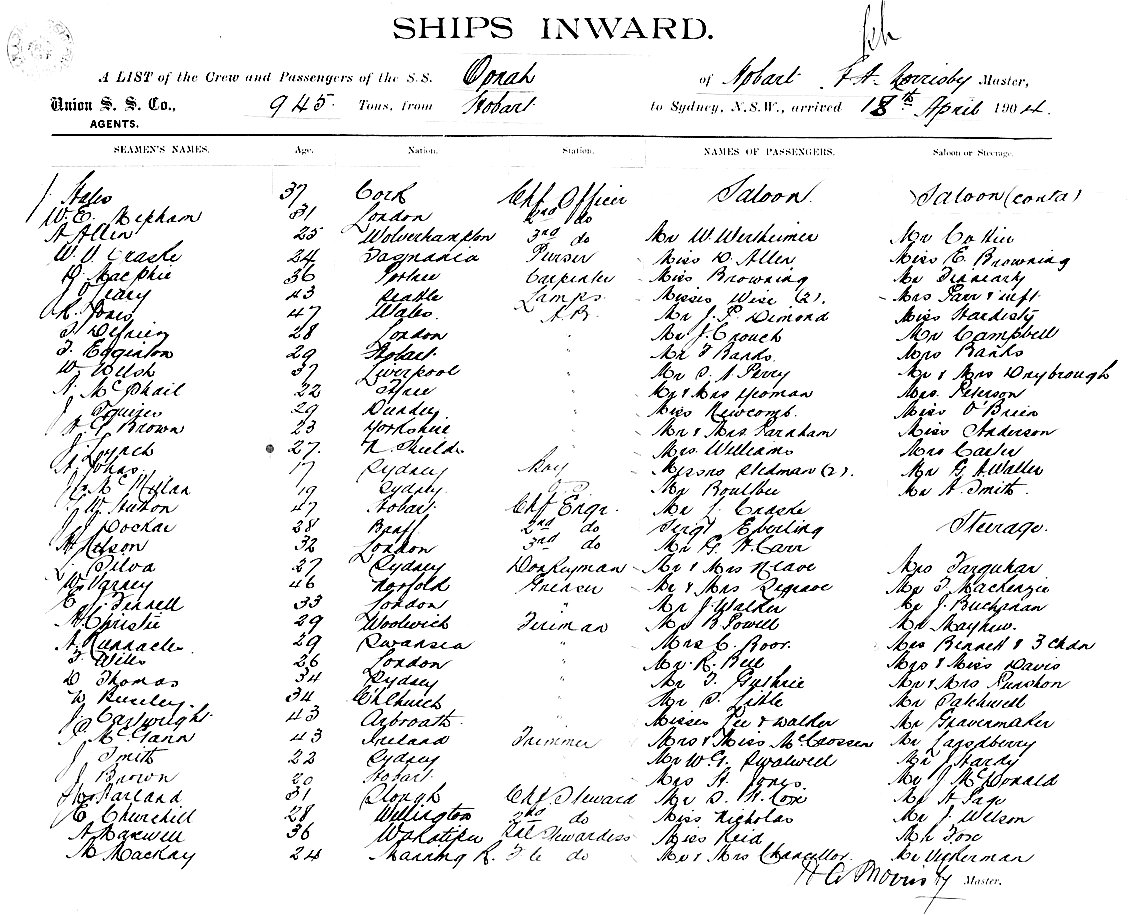 SHIPS INWARD.
A LIST of the Crew and Passengers of the S. S. Oonah of Hobart Master,
Union S. S. Co., 945 Tons, from Hobart to Sydney, N.S.W., arrived 18th April 1904.
AGENTS.
SEAMEN'S NAMES. Age. Nation. Station. NAMES OF PASSENGERS. Saloon or Steerage.
Hales 37 Cork Chf Officer Saloon Saloon (contd)
W. E. Mepham 31 London 2nd do
A Allen 25 Wolverhampton 3rd do Mr W. Wertheimer Mr
24 Tasmania Purser Miss D. Allen Miss E. Browning
D MacPhie 36 Carpenter Miss Browning Mr
J O'Leary 43 Seattle Lamps Misses Wise (2). Mrs & inft
R. Jones 47 Wales. A.B. Mr J. P. Dimond Miss Hardisty
28 London " Mr J. Crouch Mr Campbell
T. Edginton 29 Hobart " Mr F Banks Mrs Banks
W. Welsh 37 Liverpool " Mr S. A Perry Mr & Mrs Drybrough
A. McPhail 22 " Mr & Mrs Yeoman Mrs. Peterson
J Squires 29 Dundee " Miss Newcomb. Miss O'Brien
A G Brown 23 Yorkshire " Mr & Mrs Farnham Miss Anderson
J. Lynch 27. N Shields " Mrs Williams Mrs Carter
A. Johns 17 Sydney Boy Messrs Stedman (2). Mr G. A. Waller
19 Sydney Mr Boulter Mr A Smith.
W Hutton 47 Hobart Chf Engr. Mr
J. 28 Banff 2nd do Sergt Eberling Steerage.
H Nelson 32 London 3rd do Mr G. H. Carr
Silva 27 Sydney Donkeyman Mr & Mrs Neave Mrs Farquhar
W. Varney 46 Norfolk Greaser Mr & Mrs Segrave Mr T Mackenzie
E Fennell 33 London " Mr J. Walder Mr J. Buchanan
H Christie 29 Woolwich Fireman Mr B Powell Mr Mayhew.
A. 29 Swansea " Mrs C. Roor. Mrs Bennett & 3 chdn
T. Wills 26 London " Mr R. Bell Mrs & Miss Davis
D Thomas 34 Sydney " Mr T. Guthrie Mr & Mrs Punshon
W Buseley. 34 Ch'church " Mr S. Little Mr Patchwell
J. Cartwright 43 Arbroath " Misses Fee & Walder Mr Gravenmaker
P. McGann 43 Ireland Trimmer Mrs & Miss McCrossen Mr Lansdberry
J Smith 22 Sydney " Mr W G. Swalwell Mr J. Hardy
J Brown 20 Hobart " Mrs H. Jones Mr J. McDonald
31 Slough Chf Steward Mr S. H. Cox Mr A Page
C Churchill 28 Wellington 2nd do Miss Nicholas Mr J. Wilson
A Maxwell 36 Wakatipu Sal Stewardess Miss Reid Mr Fox
M Mackay 24 Manning R. F C do Mr & Mrs Chancellor. Mr Uckerman
Master.